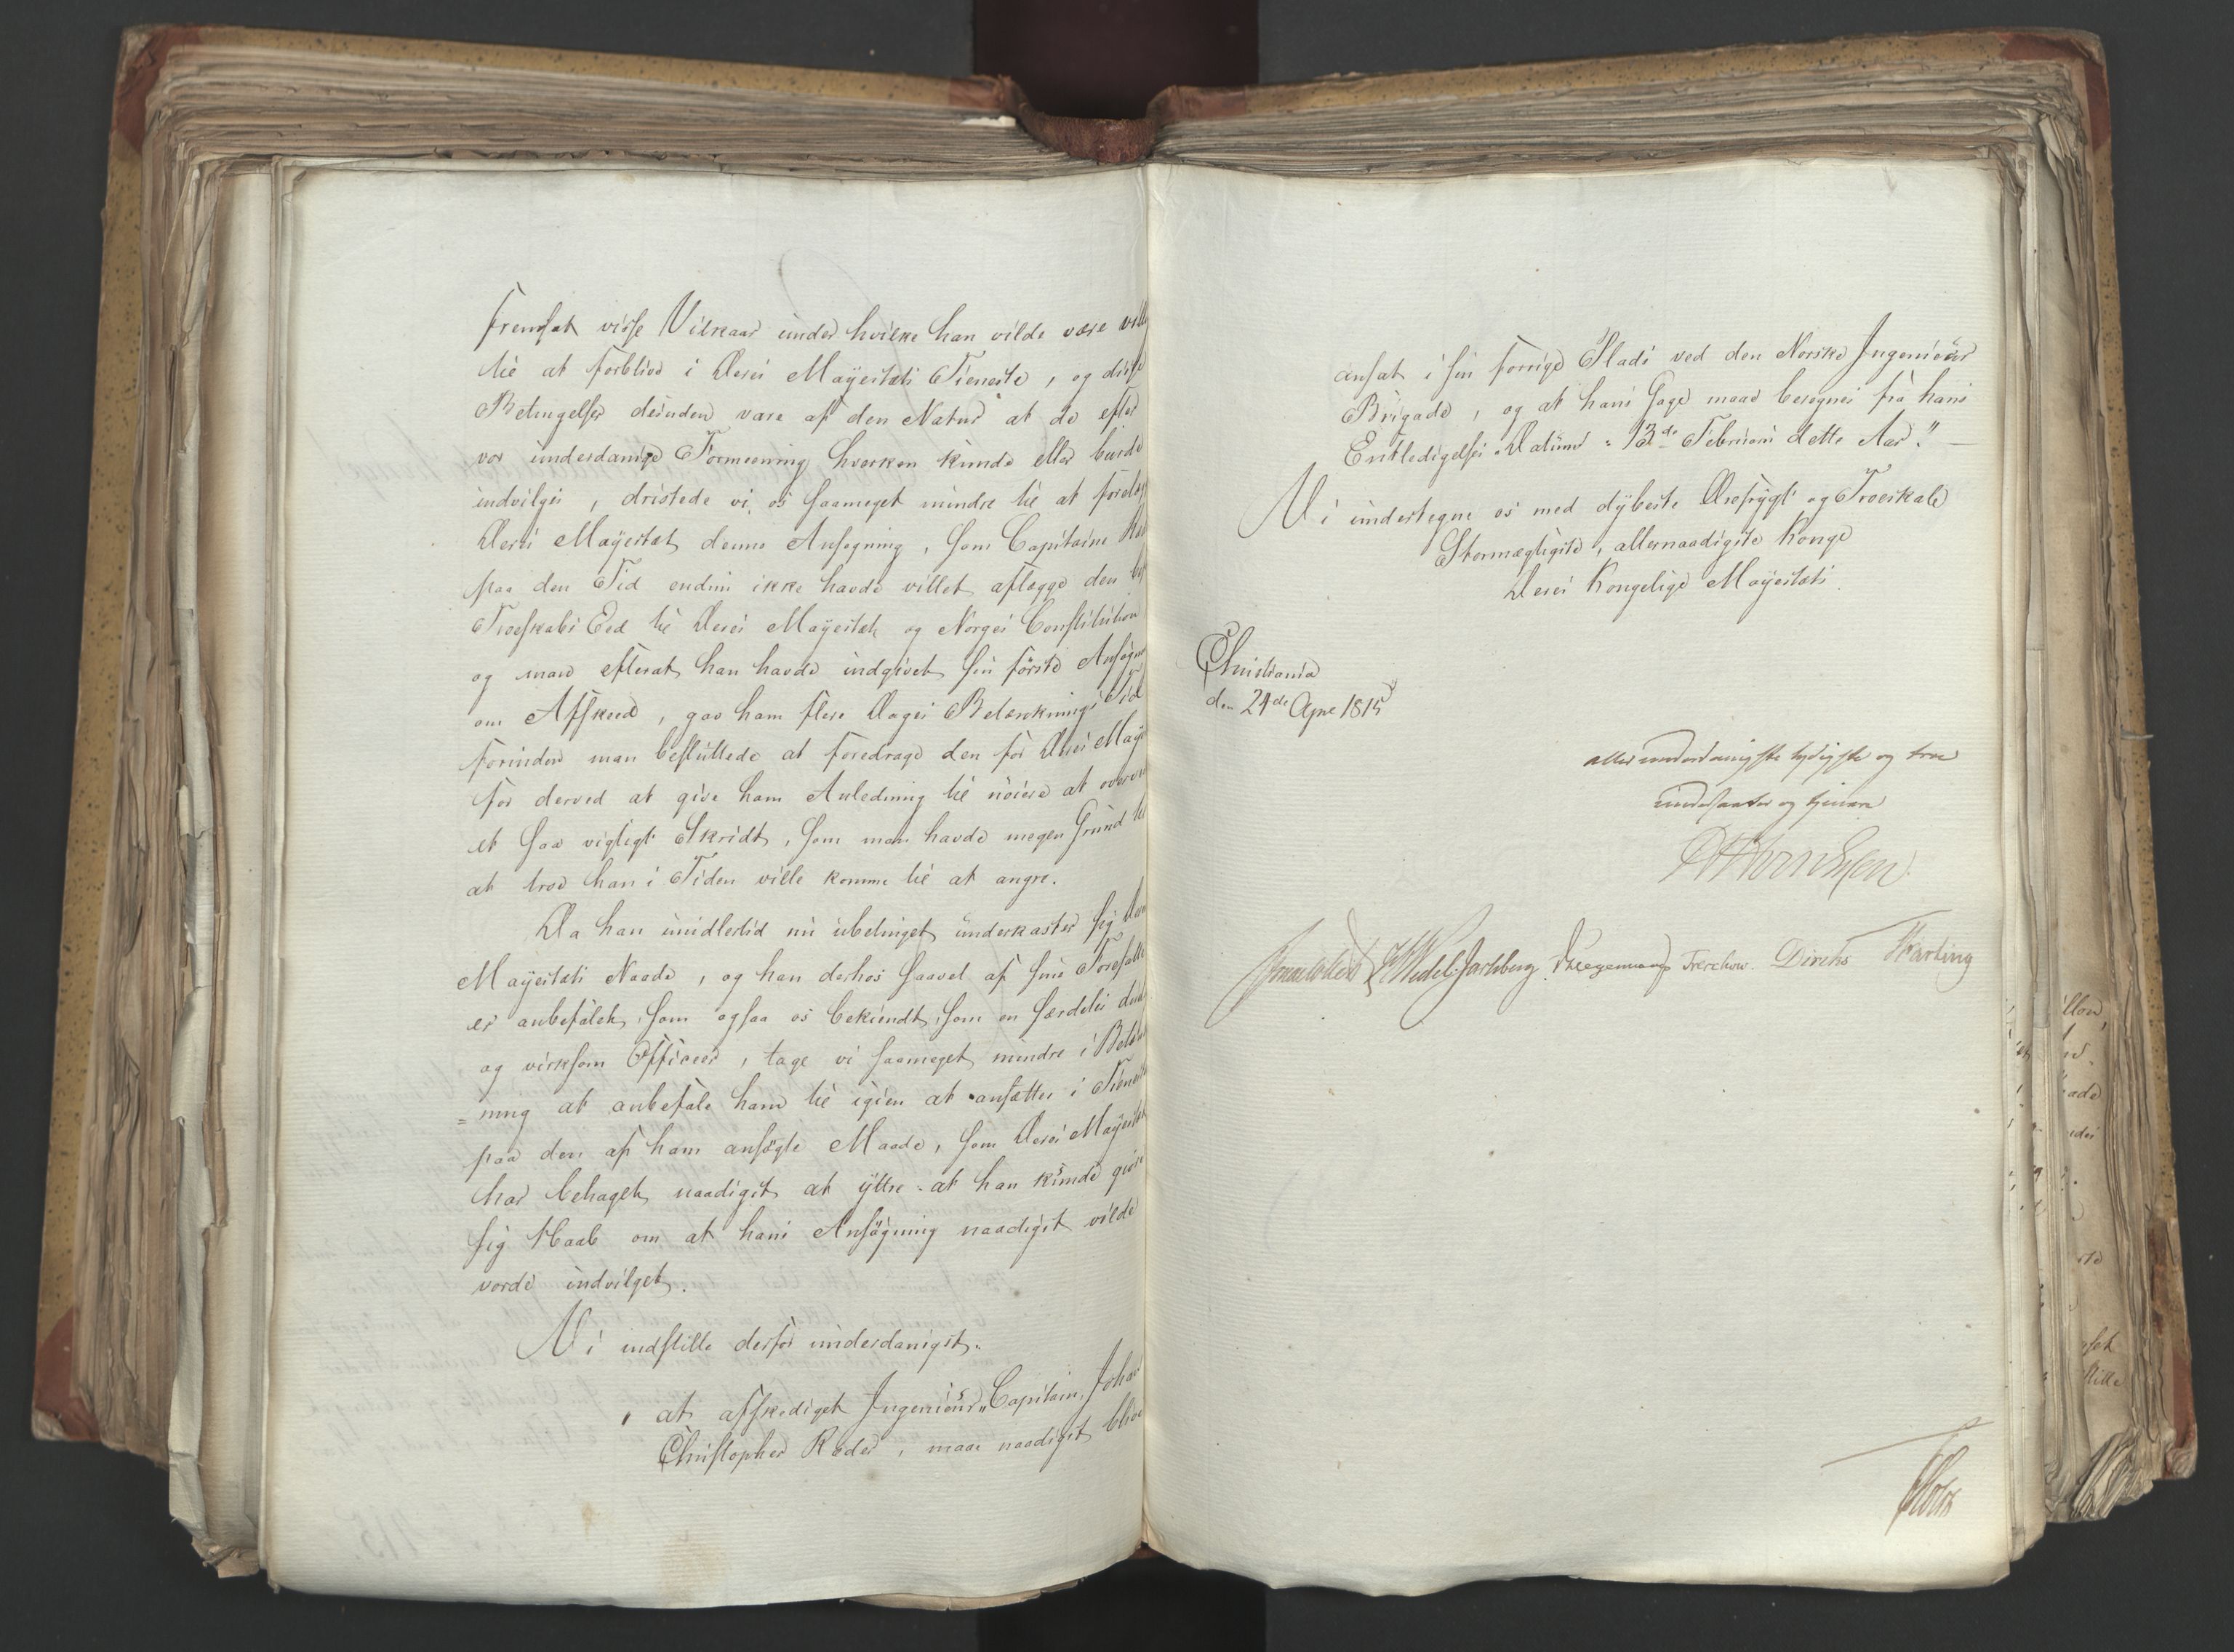 fremsat visse Vilkaar under hvilke han vilde være vill
til at forblive i Deres Mayestæts Tieneste, og disse
Betingelser desuden vare af den Natur at de efter
vor underdanige Formeening hverken kunde eller burde
indvilges, dristede vi os saameget mindre til at foredrag
Deres Mayestæt denne Ansøgning, som Capitaine Ræd
paa den Tid endnu ikke havde villet aflægge den
Troeskabs Eed til Deres Mayestæt og Norges Constitution
og man efterat han havde indgivet sin første Ansøgn
om Afskeed, gav ham flere Dages Betænknings Tid
forinden man besluttede at foredrage den for Deres May
for derved at give ham Anledning til nöiere at overve
et saa vigtigt Skridt, som man havde megen Grund til
at troe han i Tiden ville komme til at angre.
Da han imidlertid nu ubetinget underkaster sig Der
Mayestæts Naade, og han derhos saavel af sine Foresatte
er anbefalet, som ogsaa os bekiendt, som en særdeles
og virksom Officeer, tage vi saameget mindre i Betænk
=ning at anbefale ham til igien at ansættes i Tienest
paa den af ham ansøgte Maade, som Deres Mayestæt
har behaget naadigst at yttre at han kunde giøre
sig Haab om at hans Ansøgning naadigst vilde
vorde indvilget.
Vi indstille derfor underdanigst.
" at afskediget Ingenieur, Capitain, Johan
Christopher Ræder, maae naadigst blive
ansat i sin forrige Stads ved den Norske Ingenieur
Brigade, og at hans Gage maae beregnes fra hans
Entledigelses Datum 13de Februari dette Aar."
Vi undertegne os med dybeste Ærefrygt og Troeskab
Stormægtigste, allernaadigste Konge
Deres Kongelige Mayestæts
Christiania
den 24de Apr 1815
allerunderdanigste lydigste og troe
undersaatter og tjenere
Sommerhielm Wedel Jarlsberg D Hegermann Treschow. Diriks Fasting
Holst